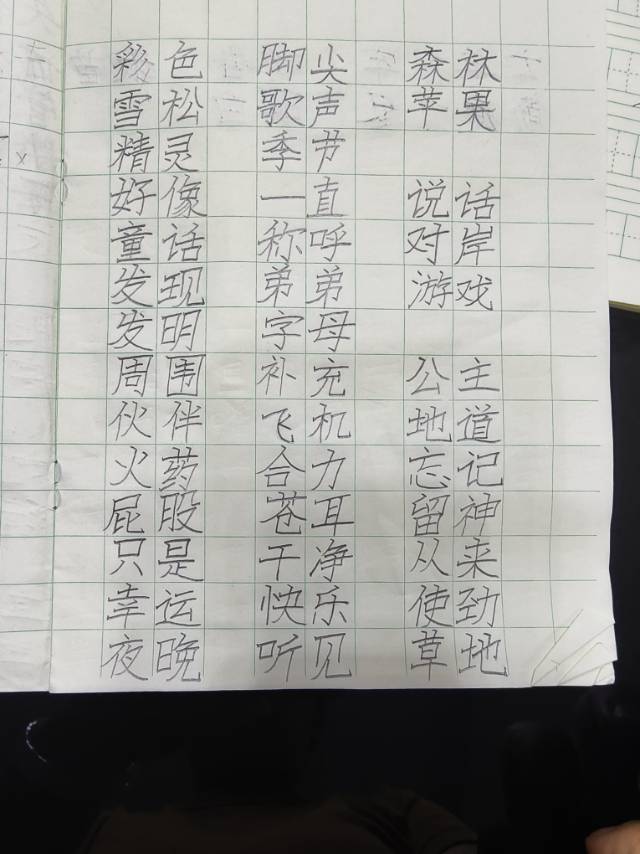 彩色 脚尖 森林
雪松 歌声 苹果
精灵 季节
好像 一直 说话
童话 称呼 对岸
发现 弟弟 游戏
发明 字母
周围 补充 公主
伙伴 飞机 地道
火药 合力 忘记
屁股 苍耳 留神
只是 干净 从来
幸运 快乐 使劲
夜晚 听见 草地